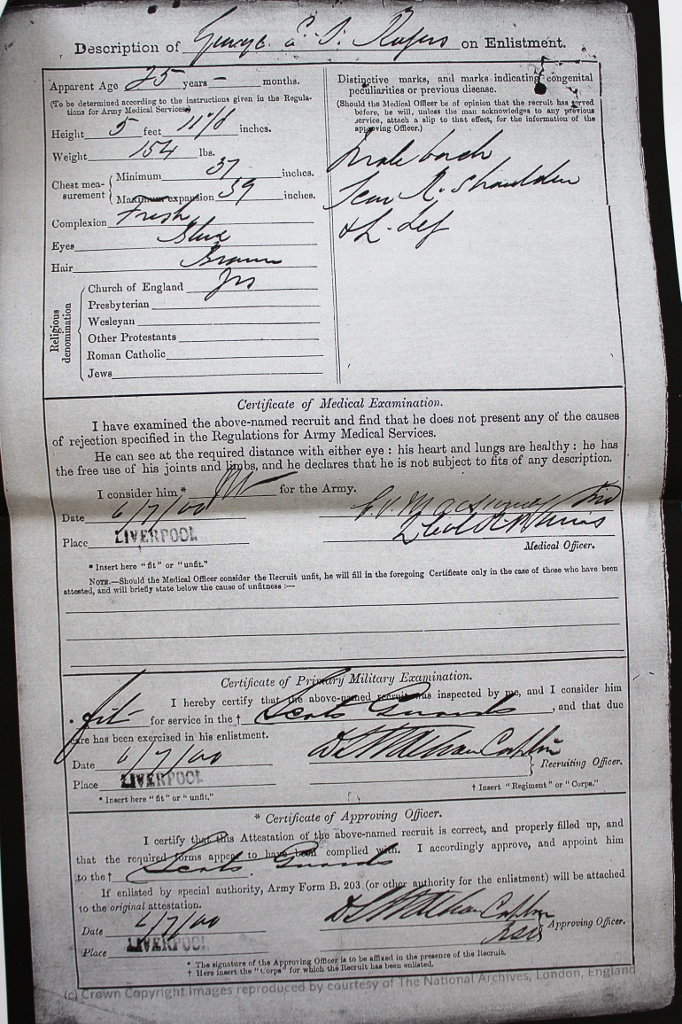 Description of George Rogers on Enlistment.
Apparent Age 25 years – months.
(To be determined according to the instructions given in the Regula-
tions for Army Medical Services.)
Height 5 feet 11 1/8 inches.
Weight 154 lbs.
Chest mea-
surement
Minimum 37 inches.
Maximum expansion 39 inches.
Complexion Fresh
Eyes Blue
Hair Brown
Religious
denomination
Church of England Yes
Presbyterian
Wesleyan
Other Protestants
Roman Catholic
Jews
Distinctive marks, and marks indicating congenital
peculiarities or previous disease.
(Should the Medical Officer be of opinion that the recruit has served
before, he will, unless the man acknowledges to any previous
service, attach a slip to that effect, for the information of the
approving Officer.)
Mole back
Scar R. Shoulder
& L.
Certificate of Medical Examination.
I have examined the above-named recruit and find that he does not present any of the causes
of rejection specified in the Regulations for Army Medical Services.
He can see at the required distance with either eye : his heart and lungs are healthy : he has
the free use of his joints and limbs, and he declares that he is not subject to fits of any description.
I consider him * fit for the Army.
Date 6/7/00
Place LIVERPOOL
Medical Officer.
* Insert here "fit" or "unfit."
NOTE.—Should the Medical Officer consider the Recruit unfit, he will fill in the foregoing Certificate only in the case of those who have been
attested, and will briefly state below the cause of unfitness :—
Certificate of Primary Military Examination.
I hereby certify that the above-named recruit was inspected by me, and I consider him
* fit for service in the † Scots Guards, and that due
care has been exercised in his enlistment.
Date 6/7/00
Place LIVERPOOL
Captn
Recruiting Officer.
* Insert here "fit" or "unfit."
† Insert "Regiment" or "Corps."
* Certificate of Approving Officer.
I certify that this Attestation of the above-named recruit is correct, and properly filled up, and
that the required forms appear to have been complied with. I accordingly approve, and appoint him
to the † Scots Guards
If enlisted by special authority, Army Form B. 203 (or other authority for the enlistment) will be attached
to the original attestation.
Date 6/7/00
Place LIVERPOOL
Captn
Approving Officer.
* The signature of the Approving Officer is to be affixed in the presence of the Recruit.
† Here insert the "Corps" for which the Recruit has been enlisted.
(c) Crown Copyright Images reproduced by courtesy of The National Archives, London, England